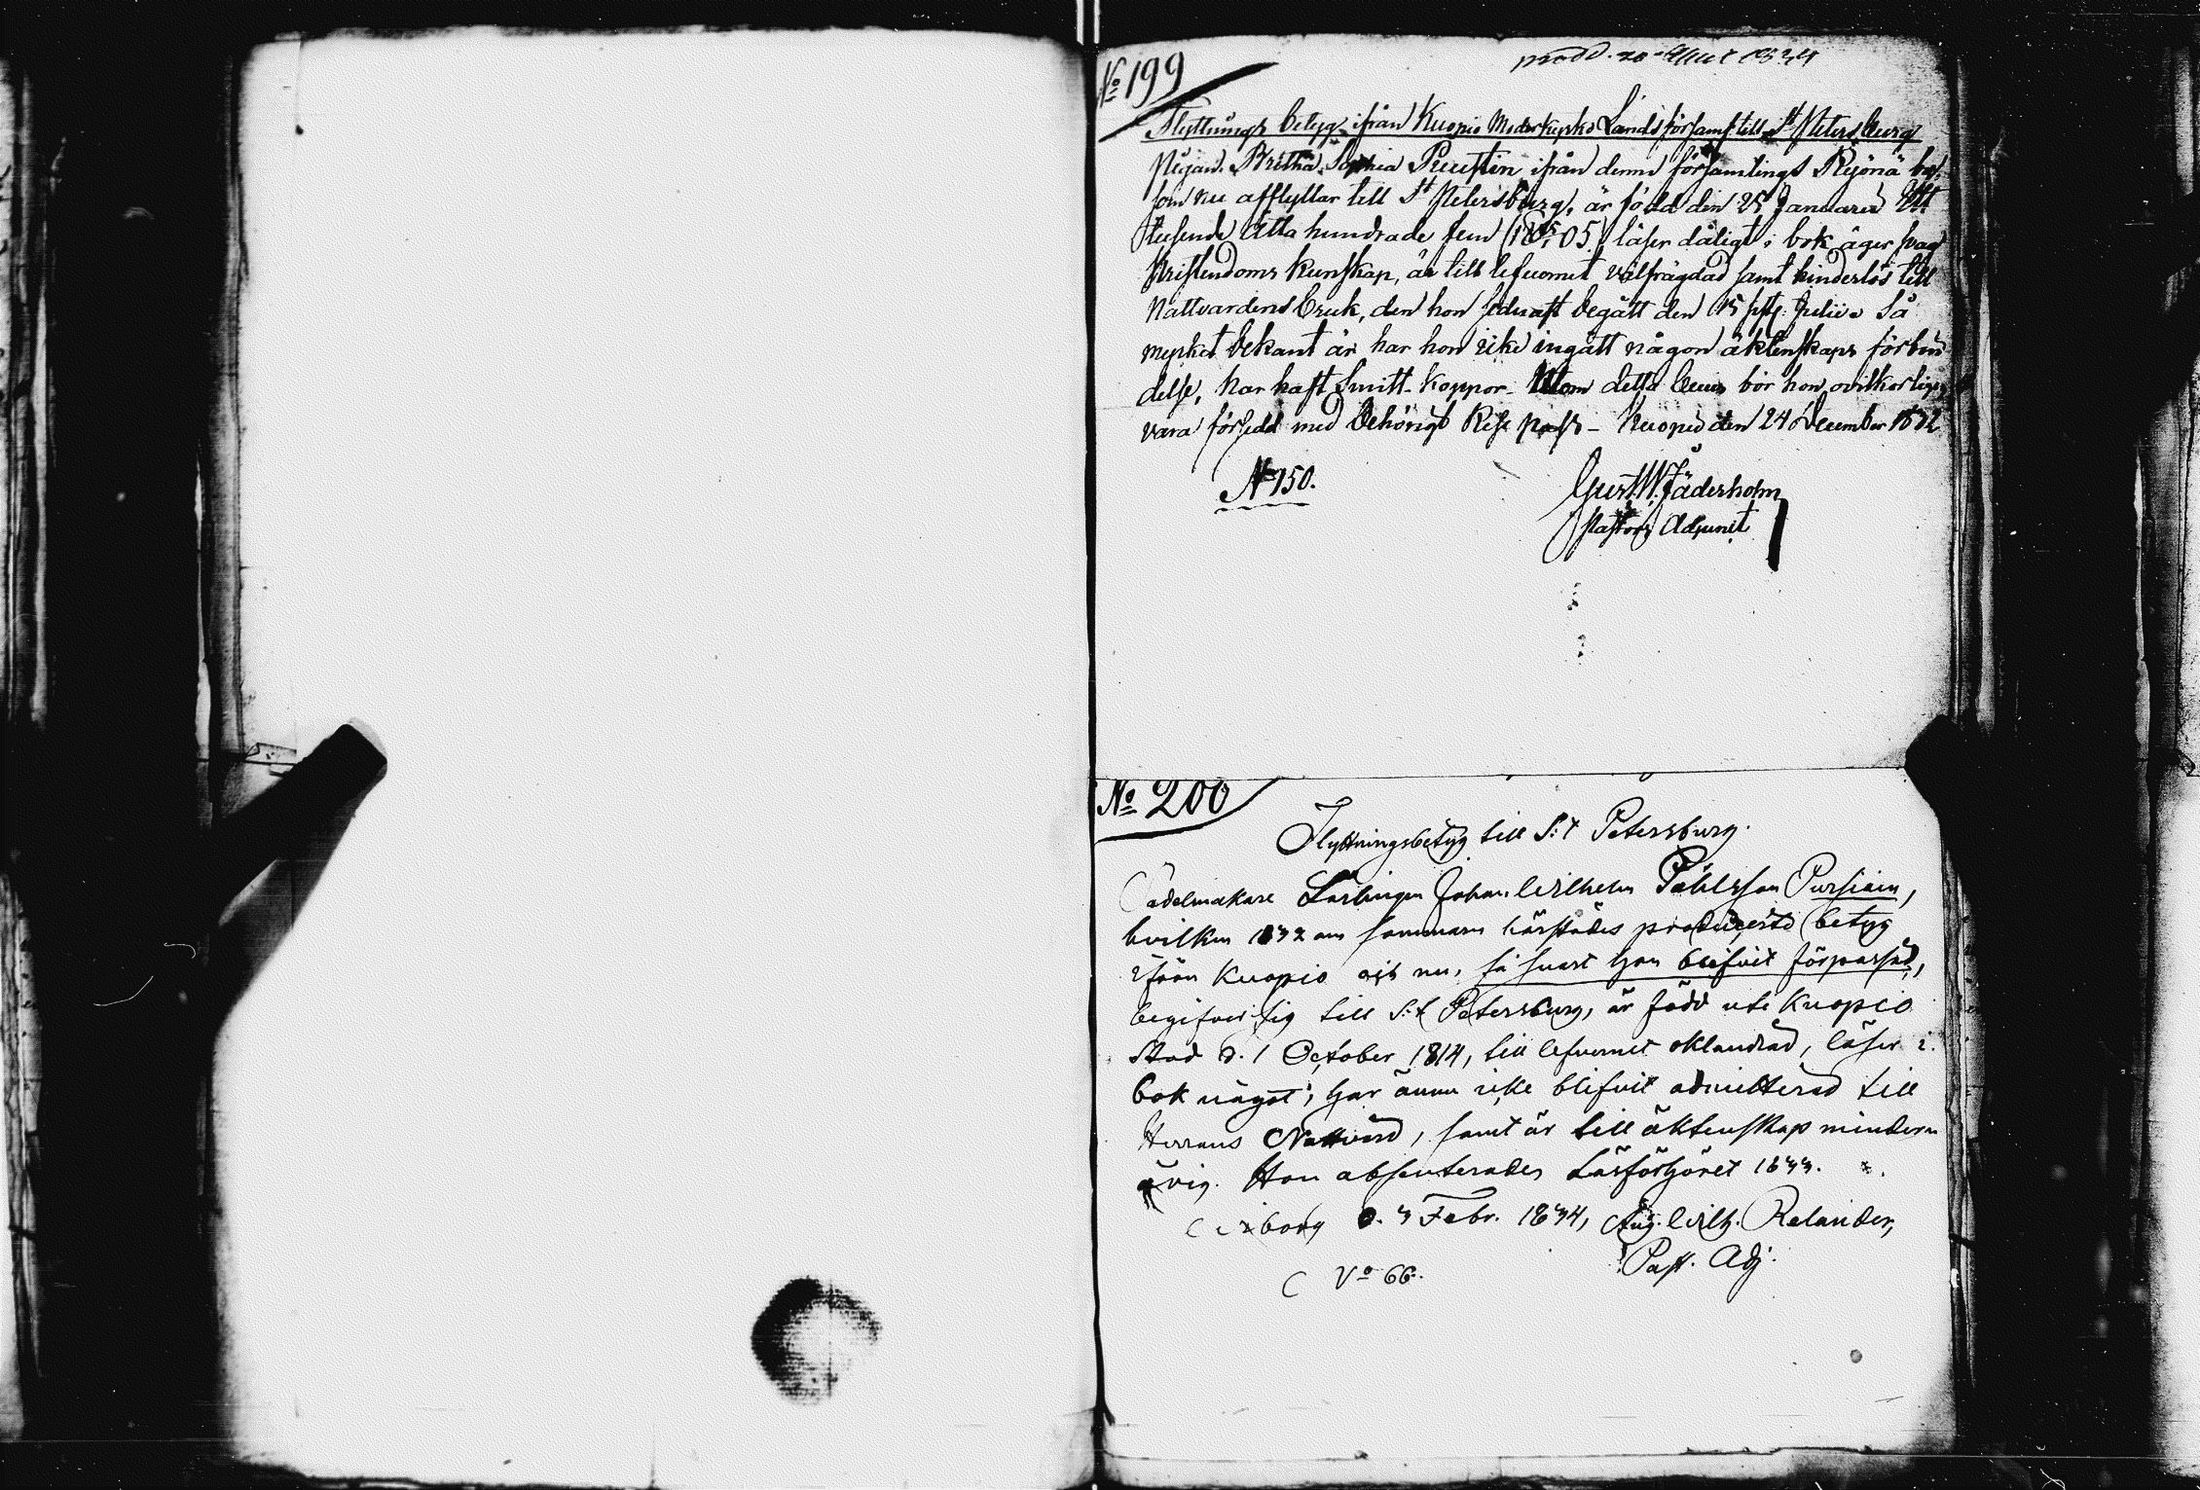 No 199
prodd. 20 1834
Flyttnings betyg ifrån Kuopio Moderkyrko Landsförsaml. till St Petersburg
Pigan Britha Sophia Puustin ifrån denna församlings Ryönä by,
som nu afflyttar till St Petersburg, är född den 25 Januarii Ett
tusende Åtta hundrade fem (1805) läser dåligt i bok äger svag
kristendoms kunskap, är till lefvernet välfrägdad samt hinderlös till
Nattvardens bruk, den hon sednast begått den 15 sistl. Julii. Så
mycket bekant är har hon icke ingått någon äktenskaps förbin-
delse, har haft Smitt-koppor. Utom detta bevis bör hon ovilkorligen
vara försedd med behörigt Rese pass - Kuopio den 24 December 1832
No 150.
Gust. W. Jäderholm
Pastors Adjunct
No 200
Flyttningsbetyg till S:t Petersburg.
Sadelmakare Lärlingen Johan Wilhelm Påhlsson Pursiain,
hvilken 1832 om sommaren härstädes producerade betyg
ifrån Kuopio och nu, så snart han blifvit förpassad,
begifver sig till S:t Petersburg, är född uti Kuopio
Stad d. 1 October 1814, till lefvernet oklandrad, läser i
bok något; har ännu icke blifvit admitterad till
Herrans Nattvard, samt är till äktenskap minder-
årig. Han absenterades Läsförhöret 1833.
Wiborg d. 3 Febr. 1834, Aug. Wilh. Relander,
Past. Adj.
No 66.